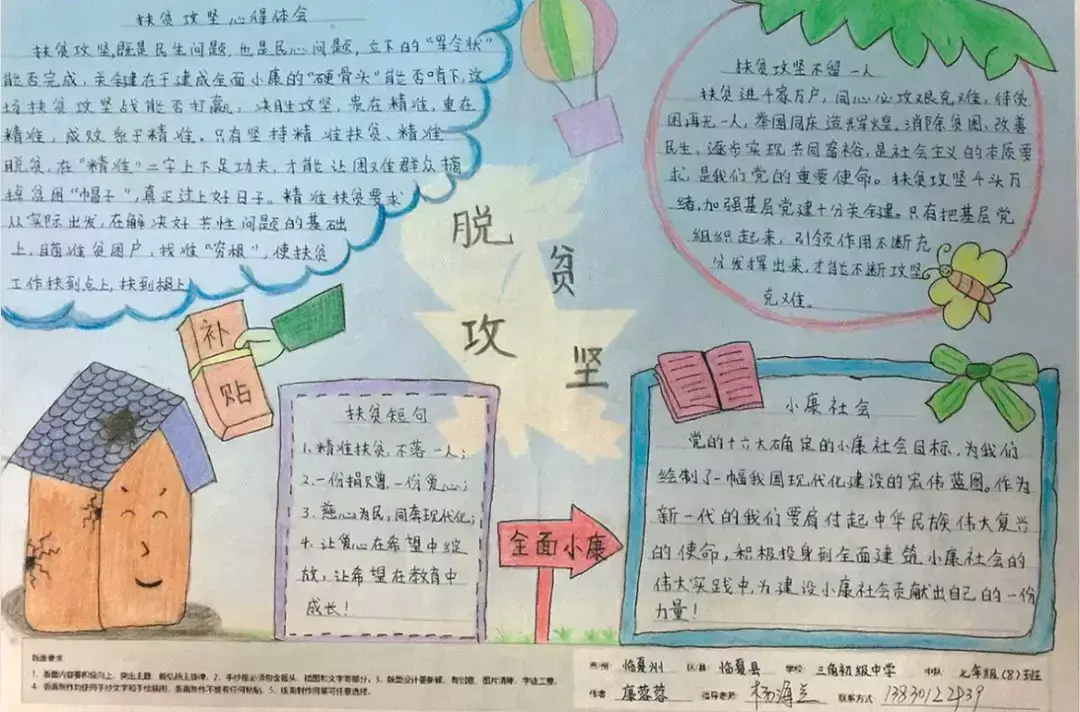 扶贫攻坚心得体会
扶贫攻坚,既是民生问题,也是民心问题,立下的“军令状”
能否完成,关键在于建成全面小康的“硬骨头”能否啃下,这
场扶贫攻坚战能否打赢,决胜攻坚,贵在精准,重在
精准,成效系于精准。只有坚持精准扶贫、精准
脱贫,在“精准”二字上下足功夫,才能让困难群众摘
掉贫困“帽子”,真正过上好日子。精准扶贫要求
从实际出发,在解决好共性问题的基础
上,瞄准贫困户,找准“穷根”,使扶贫
工作扶到点上,扶到根上
扶贫攻坚不留一人
扶贫进千家万户,同心必攻艰克难,使贫
困再无一人,举国同庆造辉煌。消除贫困、改善
民生,逐步实现共同富裕,是社会主义的本质要
求,是我们党的重要使命。扶贫攻坚千头万
绪,加强基层党建十分关键。只有把基层党
组织起来,引领作用不断充
分发挥出来,才能不断攻坚
克难。
脱
贫
攻
坚
补
贴
扶贫短句
1.精准扶贫,不落一人;
2.一份捐赠,一份爱心;
3.慈心为民,同奔现代化;
4.让爱心在希望中绽
放,让希望在教育中
成长!
全面小康
小康社会
党的十六大确定的小康社会目标,为我们
绘制了一幅我国现代化建设的宏伟蓝图。作为
新一代的我们要肩付起中华民族伟大复兴
的使命,积极投身到全面建筑小康社会的
伟大实践中,为建设小康社会贡献出自己的一份
力量!
版面要求
1、版面内容要积极向上,突出主题,能弘扬主旋律。2、手抄报必须包含报头、插图和文字等部分。3、版型设计要新颖,有创意,图片清晰,字迹工整。
4、版面制作均使用手抄文字和手绘插图,版面制作不能有任何粘贴。5、版南制作用笔可任意选择。
市/州: 临夏州 区/县: 临夏县 学校: 三角初级中学 中队: 七年级(8)班班
作者: 康蓉蓉 指导老师: 联系方式: 13830122439